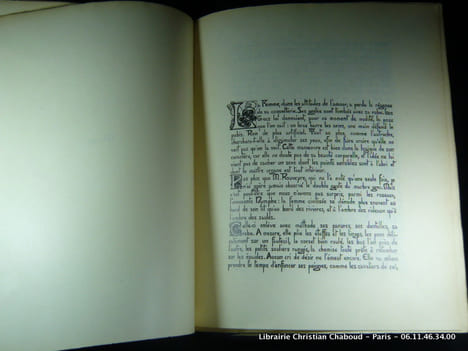 La Femme, dans les attitudes de l'amour, a perdu la
de sa coquetterie. Ses sont tombés avec sa robe. Les
Grecs lui donnaient, pour ce moment de nudité, la pose
que l'on sait : un bras barre les seins, une main défend le
pubis. Rien de plus artificiel. Tout au plus, comme l'autruche,
cherchera-t-elle à dissimuler ses yeux, afin de faire croire qu'elle ne
voit pas qu'on la voit. Cette manœuvre est bien dans la logique de son
caractère, car elle ne doute pas de sa beauté corporelle, et l'idée ne lui
vient pas de cacher un sein dont les points sensibles sont à l'abri et
dont le maître est tout intérieur.
Pas plus que M. Rouveyre, qui ne l'a noté qu'une seule fois, je
n'ai guère jamais observé le double geste du marbre
n'est possible que nous n'avons pas surpris, parmi les roseaux,
l'innocente Nymphe : la femme civilisée se dénude plus souvent au
bord de son lit qu'au bord des rivières, et à l'ombre des rideaux qu'à
l'ombre des saules.
Celle-ci enlève avec méthode ses parures, ses dentelles, sa
robe. A mesure, elle plie les étoffes et les linges, les pose
sur un fauteuil, le corset bien roulé, les bas l'un près de
l'autre, les petits souliers rangés, la chemise toute prête à retomber
sur les épaules. Aucun cri de désir ne l'émeut encore. Elle va même
prendre le temps d'enfoncer ses peignes, comme les cavaliers de zèle,
Librairie Christian Chaboud - Paris - 06.11.46.34.00